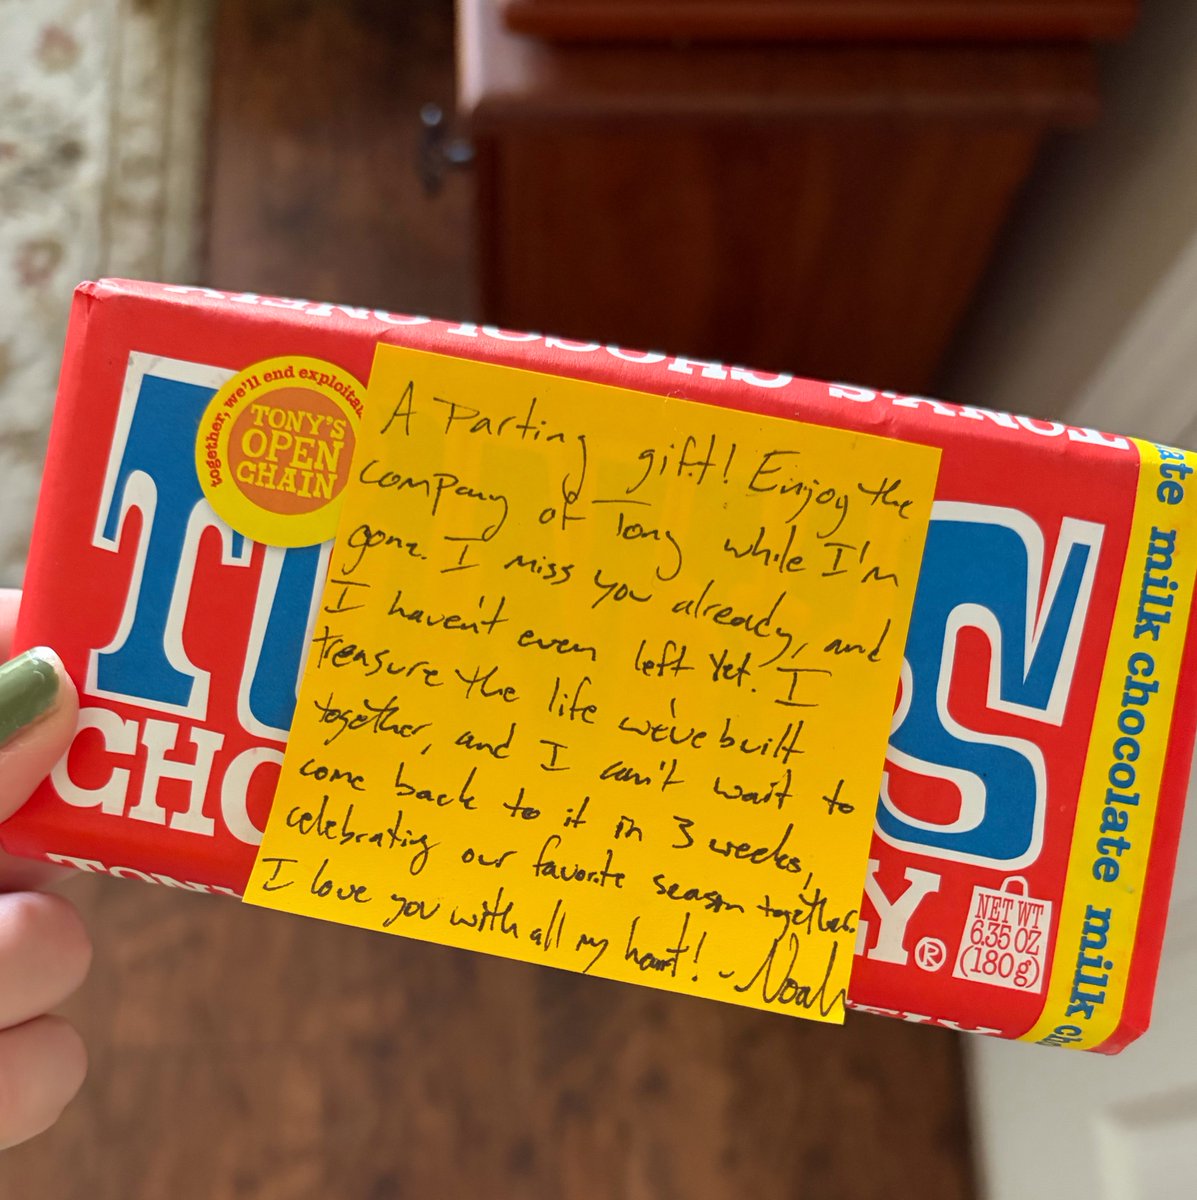 TONY'S CHOCOLONELY
together, we'll end exploita
TONY'S
OPEN
CHAIN
A Parting gift! Enjoy the
company of Tony while I'm
gone. I miss you already, and
I haven't even left yet. I
treasure the life we've built
together, and I can't wait to
come back to it in 3 weeks,
celebrating our favorite season together.
I love you with all my heart! - Noah
T S
CHO LY®
NET WT
6.35 OZ
(180g)
milk chocolate milk